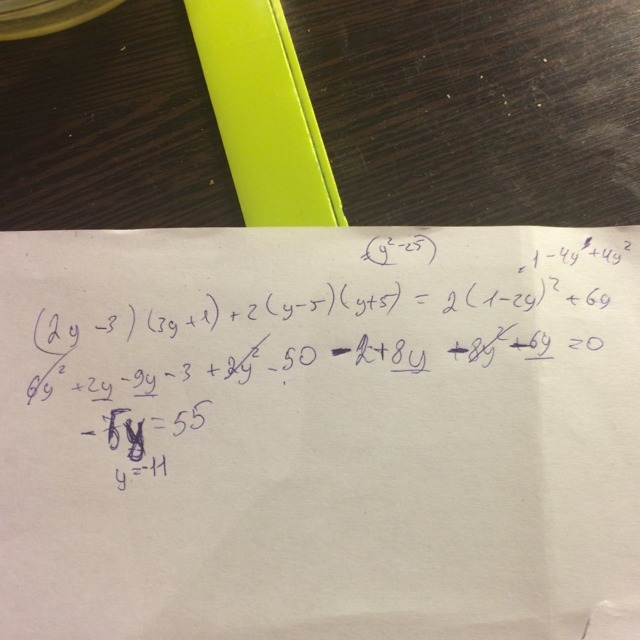 (y²-25)
1-4y+4y²
(2y-3)(3y+1)+2(y-5)(y+5)=2(1-2y)²+6y
6y²+2y-9y-3+2y²-50-2+8y-8y²-6y=0
-5y=55
y=-11